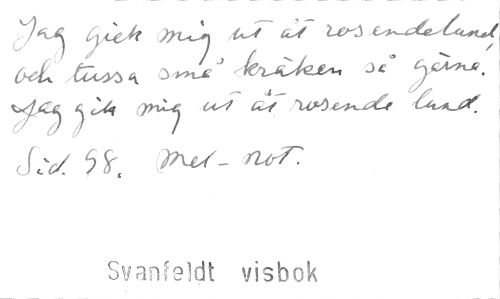 Jag gick mig ut åt rosendelund,
och tussa små kräken så gärna.
Jag gik mig ut åt rosende lund.
Sid. 98. Mel-not.
Svanfeldt visbok